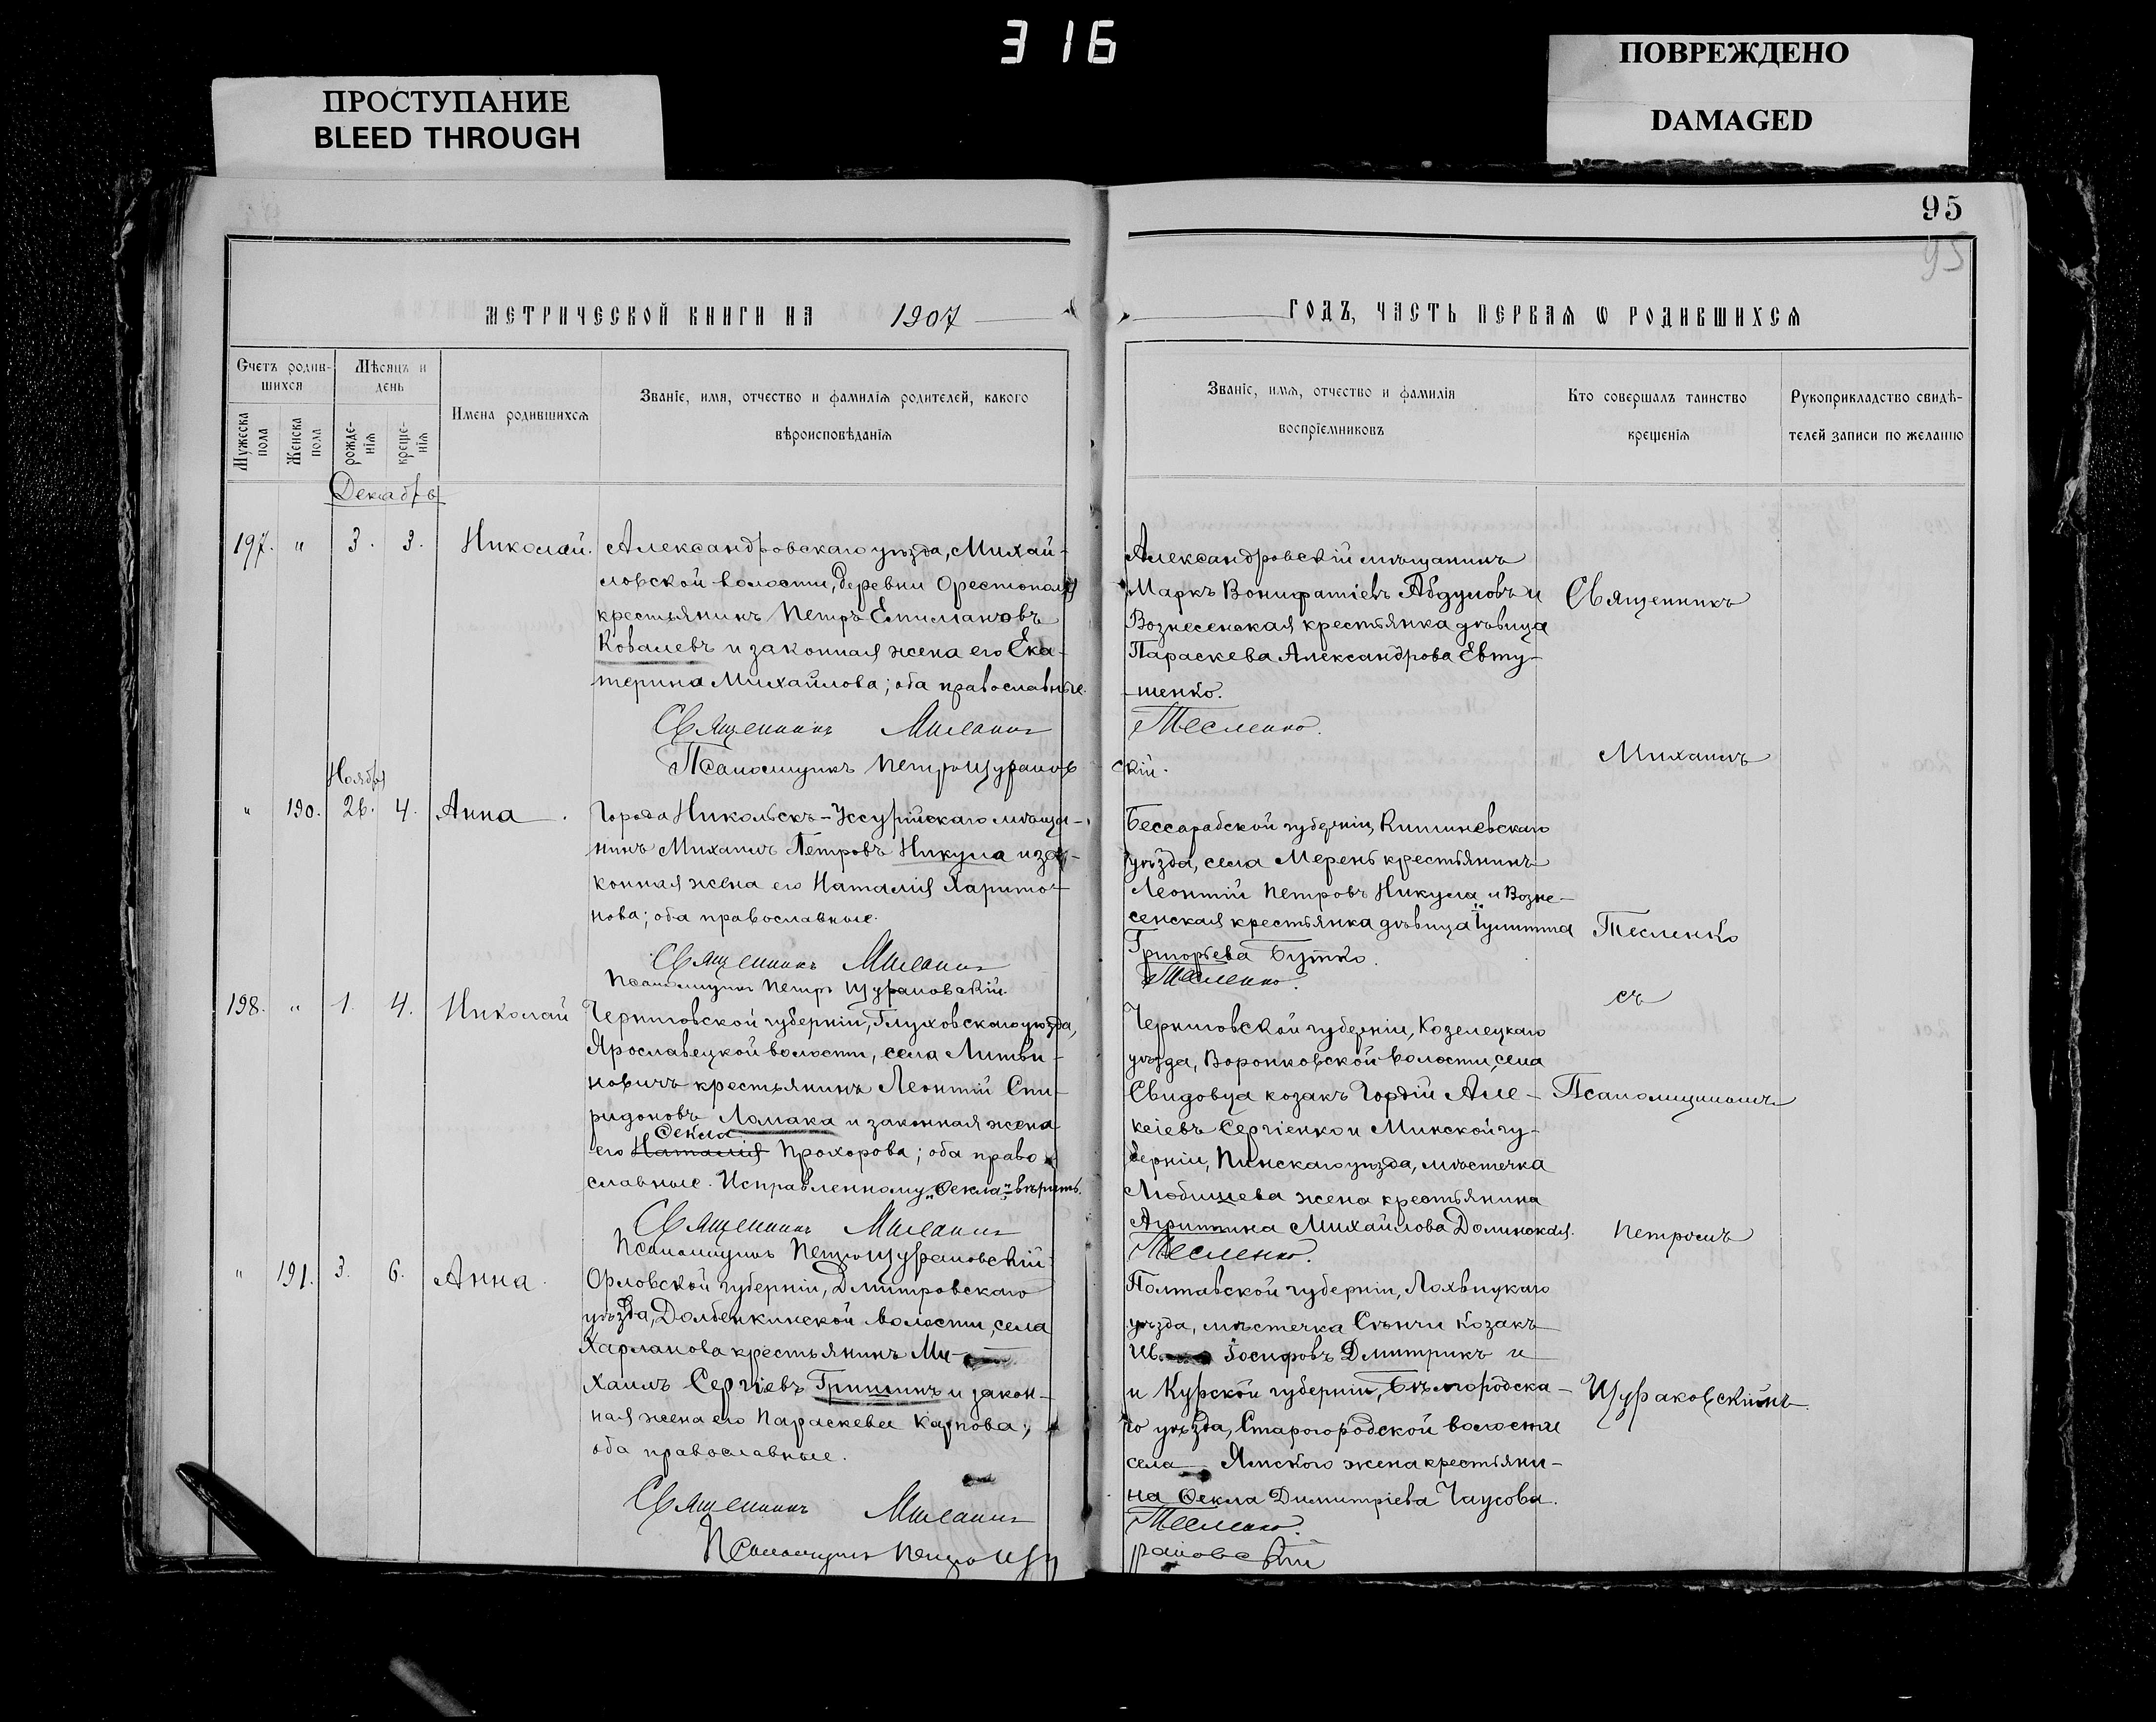 316
ПРОСТУПАНИЕ
BLEED THROUGH
ПОВРЕЖДЕНО
DAMAGED
95
95
МЕТРИЧЕСКОЙ КНИГИ НА 1907
ГОДЪ, ЧАСТЬ ПЕРВАЯ Ѡ РОДИВШИХСЯ
Счетъ родив-
шихся
Мужеска пола
Женска пола
Мѣсяцъ и
день
рожде-
нія
креще-
нія
Имена родившихся
Званіе, имя, отчество и фамилія родителей, какого
вѣроисповѣданія
Званіе, имя, отчество и фамилія
воспріемниковъ
Кто совершалъ таинство
крещенія
Рукоприкладство свидѣ-
телей записи по желанію
Декабрь
197. " 3. 3. Николай.
Александровскаго уѣзда, Михай-
ловской волости, деревни Орестополя
крестьянинъ Петръ Епифановъ
Ковалевъ и законная жена его Ека-
терина Михайлова; оба православные.
Священникъ Михаилъ
Псаломщикъ Петръ Щураков
Александровскій мѣщанинъ
Маркъ Вонифатіевъ Абдуловъ и
Вознесенская крестьянка дѣвица
Параскева Александрова Евту-
шенко.
Тесленко.
скій.
Ноября
" 190. 26. 4. Анна.
Города Никольскъ-Уссурійскаго мѣща-
нинъ Михаилъ Петровъ Никула и за-
конная жена его Наталія Харито-
нова; оба православные.
Священникъ Михаилъ
Псаломщикъ Петръ Щураковскій.
Бессарабской губерніи, Кишиневскаго
уѣзда, села Мерень крестьянинъ
Леонтій Петровъ Никула и Возне-
сенская крестьянка дѣвица Іулитта
Григорьева Бутко.
Тесленко.
198. " 1. 4. Николай
Черниговской губерніи, Глуховскаго уѣзда,
Ярославецкой волости, села Литви-
новичъ крестьянинъ Леонтій Спи-
ридоновъ Ломака и законная жена
Ѳекла
его Наталія Прохорова; оба право-
славные. Исправленному „Ѳекла" вѣрить.
Священникъ Михаилъ
Псаломщикъ Петръ Щураковскій
Черниговской губерніи, Козелецкаго
уѣзда, Воронковской волости, села
Свидовца козакъ Гордій Але-
ксіевъ Сергіенко и Минской гу-
берніи, Пинскаго уѣзда, мѣстечка
Любишева жена крестьянина
Агриппина Михайлова Долинская.
Тесленко.
" 191. 3. 6. Анна.
Орловской губерніи, Дмитровскаго
уѣзда, Долбенкинской волости, села
Харланова крестьянинъ Ми-
хаилъ Сергіевъ Гришинъ и закон-
ная жена его Параскева Карпова;
оба православные.
Священникъ Михаилъ
Псаломщикъ Петръ Щу
Полтавской губерніи, Лохвицкаго
уѣзда, мѣстечка Сѣнчи козакъ
Ив Іосифовъ Дмитрикъ и
и Курской губерніи, Бѣлгородска-
го уѣзда, Старогородской волости
села Ямского жена крестьяни-
на Ѳекла Димитріева Чаусова.
Тесленко.
раковскій
Священникъ
Михаилъ
Тесленко
съ
Псаломщикомъ
Петромъ
Щураковскимъ.